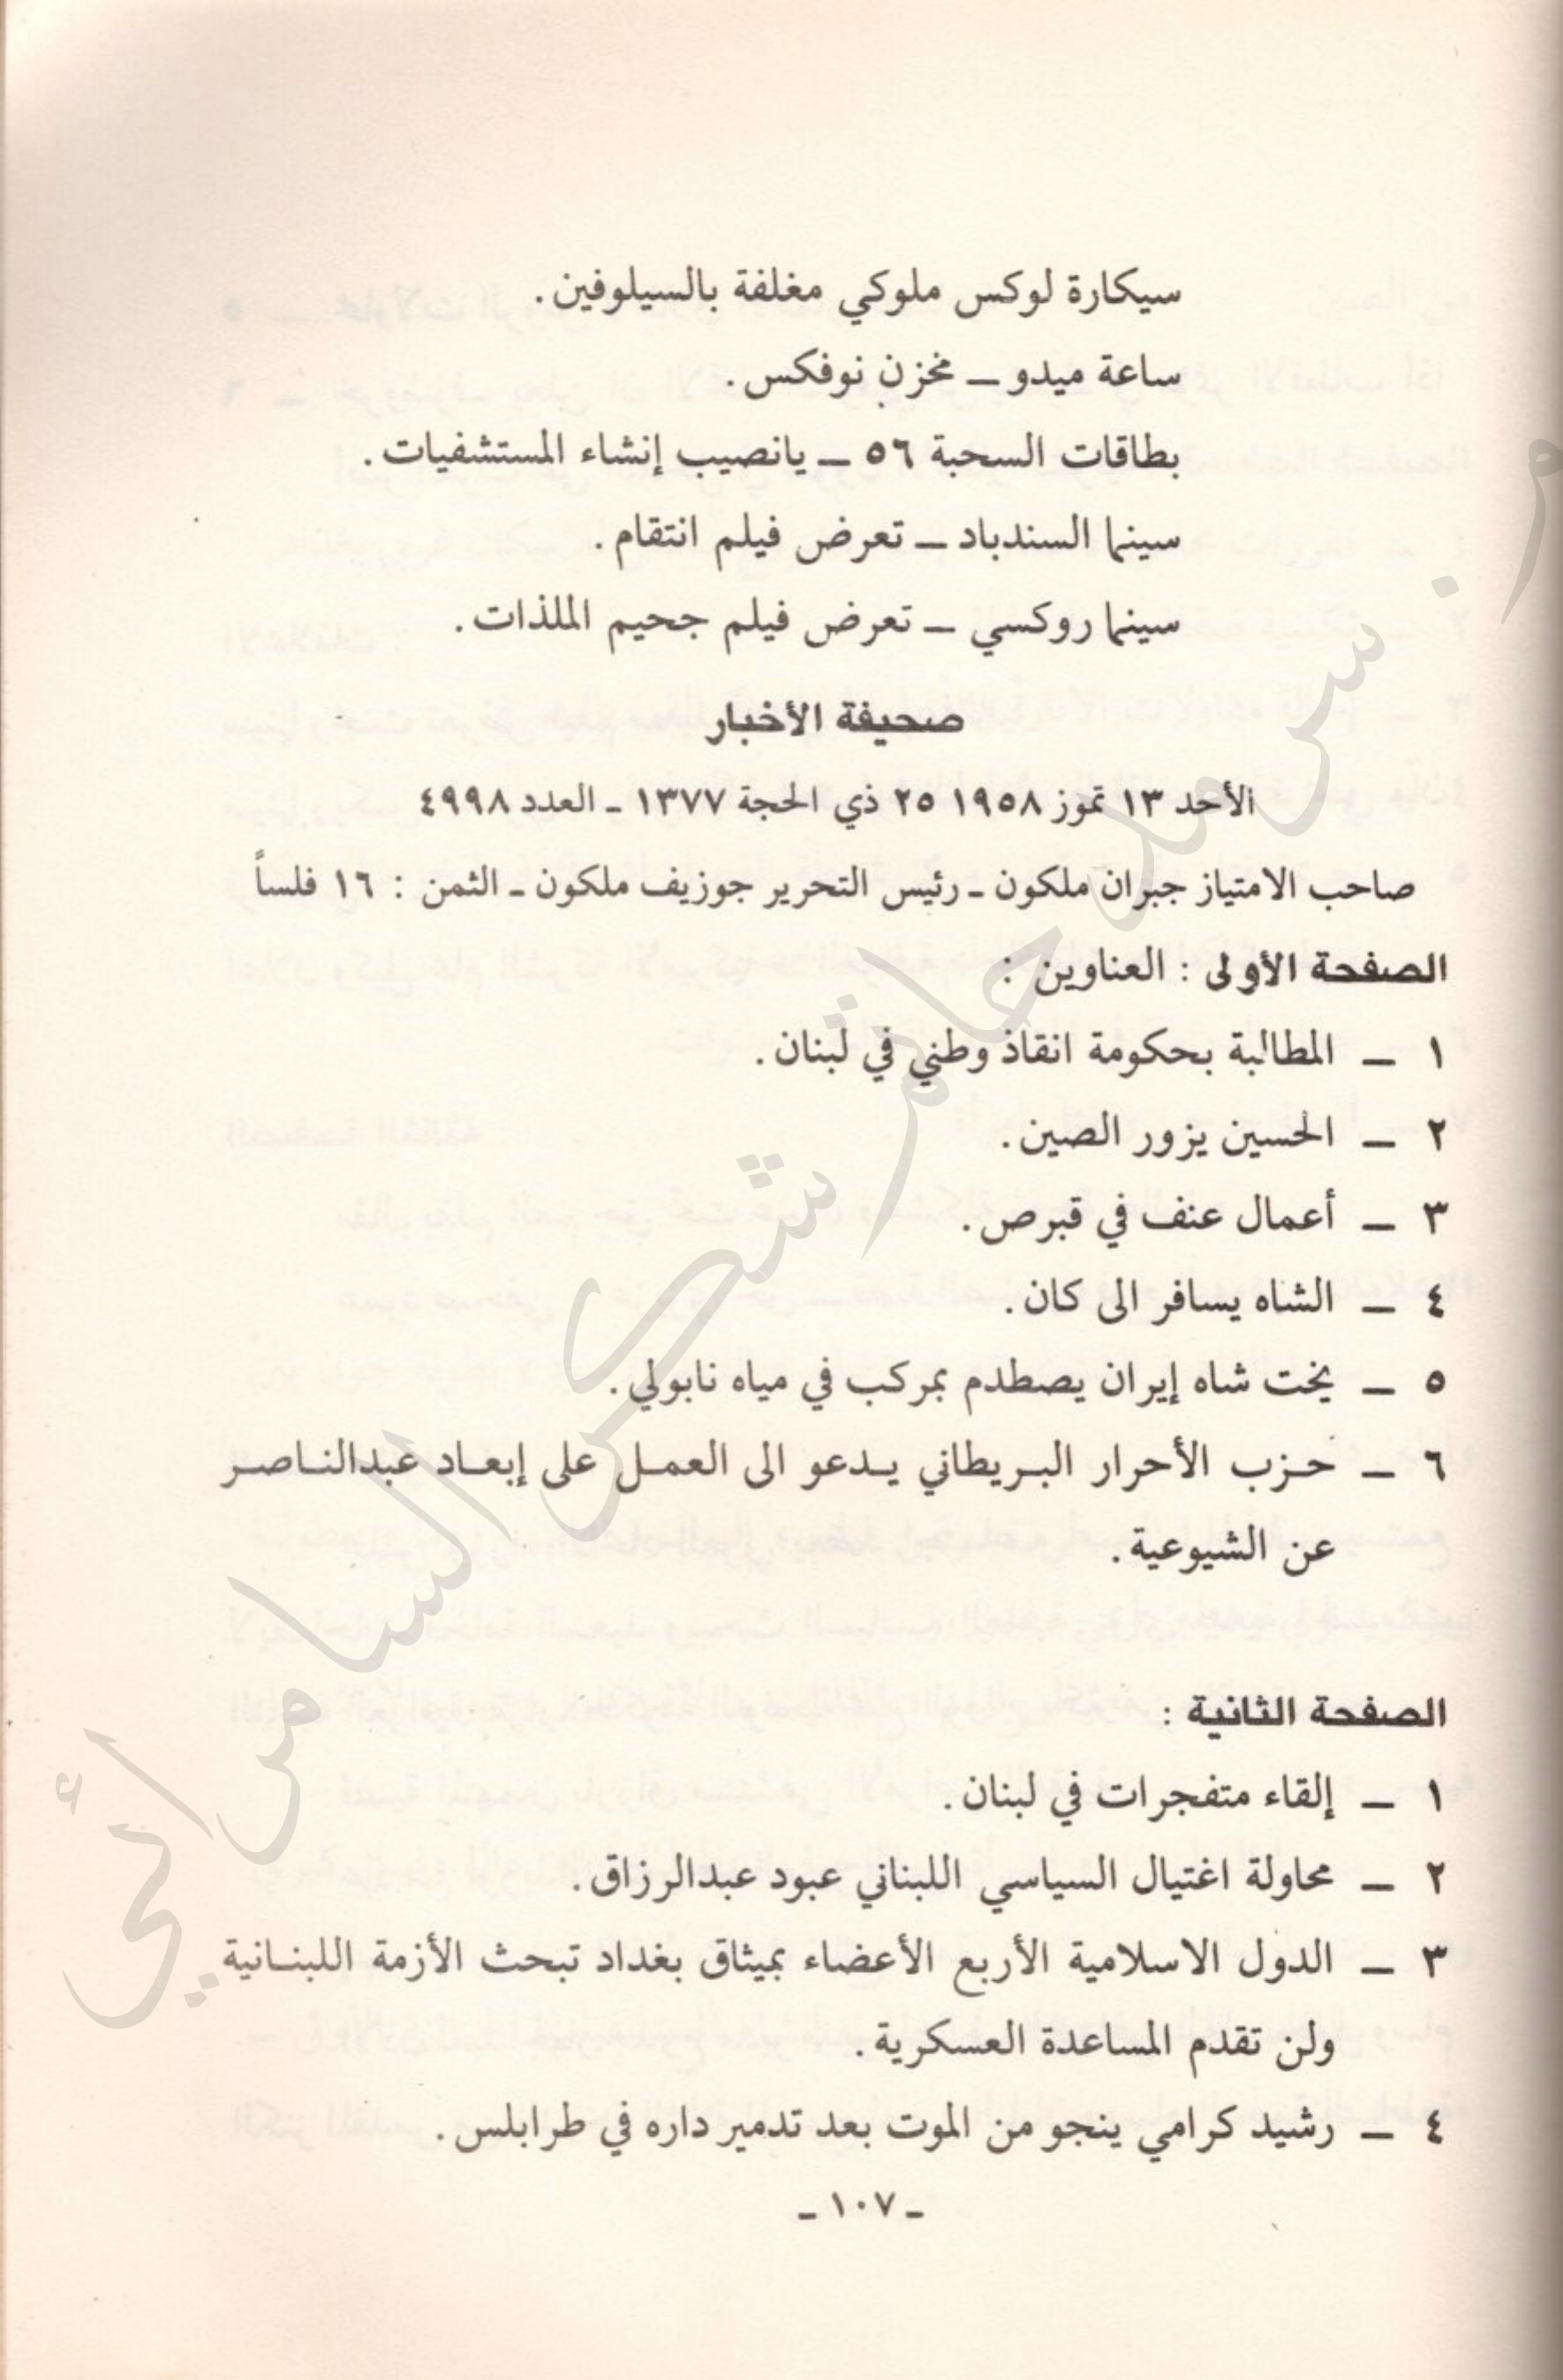 سيكارة لوكس ملوكي مغلفة بالسيلوفين.
ساعة ميدو ــ مخزن نوفكس.
بطاقات السحبة ٥٦ ــ يانصيب إنشاء المستشفيات.
سينما السندباد ــ تعرض فيلم انتقام.
سينما روكسي ــ تعرض فيلم جحيم الملذات.
صحيفة الأخبار
الأحد ١٣ تموز ١٩٥٨ ٢٥ ذي الحجة ١٣٧٧ ـ العدد ٤٩٩٨
صاحب الامتياز جبران ملكون ـ رئيس التحرير جوزيف ملكون ـ الثمن : ١٦ فلساً
الصفحة الأولى : العناوين :
١ ــ المطالبة بحكومة انقاذ وطني في لبنان.
٢ ــ الحسين يزور الصين.
٣ ــ أعمال عنف في قبرص.
٤ ــ الشاه يسافر الى كان.
٥ ــ يخت شاه إيران يصطدم بمركب في مياه نابولي.
٦ ــ حزب الأحرار البريطاني يدعو الى العمل على إبعاد عبدالناصر
عن الشيوعية.
الصفحة الثانية :
١ ــ إلقاء متفجرات في لبنان.
٢ ــ محاولة اغتيال السياسي اللبناني عبود عبدالرزاق.
٣ ــ الدول الاسلامية الأربع الأعضاء بميثاق بغداد تبحث الأزمة اللبنانية
ولن تقدم المساعدة العسكرية.
٤ ــ رشيد كرامي ينجو من الموت بعد تدمير داره في طرابلس.
ـ ١٠٧ ـ
سرمد حاتم شكر السامرائي